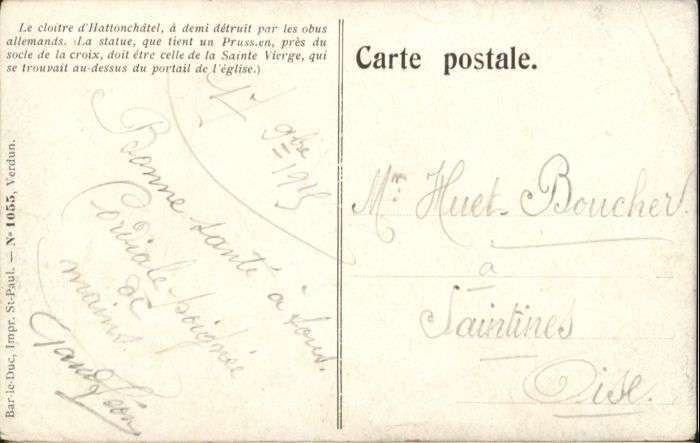 Le cloître d'Hattonchâtel, à demi détruit par les obus
allemands. (La statue, que tient un Prussien, près du
socle de la croix, doit être celle de la Sainte Vierge, qui
se trouvait au-dessus du portail de l'église.)
Carte postale.
17 9bre
1915
Bonne santé à tous.
Cordiale poignée
de
mains.
Mr Huet-Boucher.
à
Saintines
Oise.
Bar-le-Duc, Impr. St-Paul. — No 1055, Verdun.